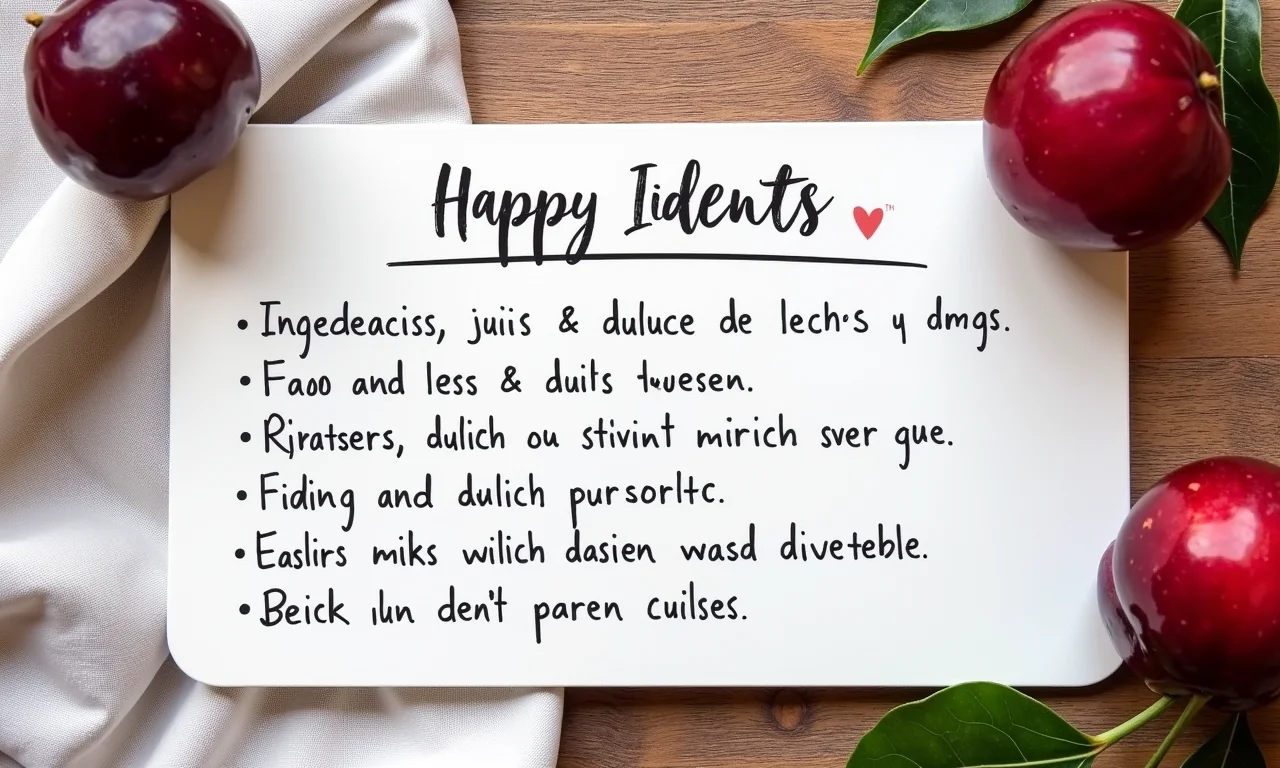 Happy Iidents ™
• Ingedeaciss, juiis & duluce de lech·s y dmgs.
• Faoo and less & duits tuuesen.
• Rjratsers, dulich ou stivint mirich sver gue.
• Fiding and dulich pursorltc.
• Easlirs miks wilich dasien wasd diveteble.
• Beick ılın den't paren cuilses.